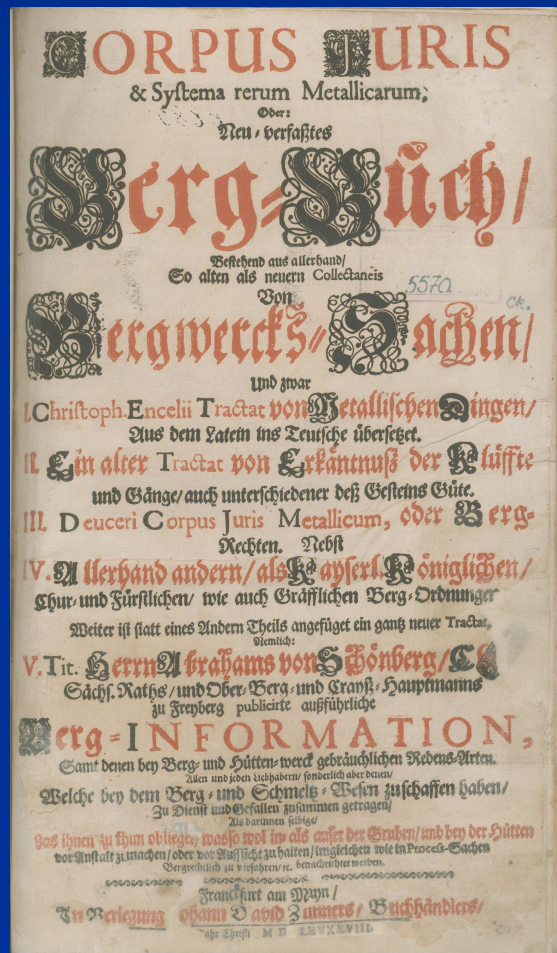 CORPUS JURIS
& Systema rerum Metallicarum;
Oder:
Neu-verfaßtes
Berg-Buch/
Bestehend aus allerhand/
So alten als neuern Collectaneis
5570
Von
Ck.
Bergwercks-Sachen/
Und zwar
I. Christoph. Encelii Tractat von Metallischen Dingen/
Aus dem Latein ins Teutsche übersetzet.
II. Ein alter Tractat von Erkäntnuß der Klüffte
und Gänge/ auch unterschiedener deß Gesteins Güte.
III. Deuceri Corpus Juris Metallicum, oder Berg-
Rechten. Nebst
IV. Allerhand andern/ als Kayserl. Königlichen/
Chur- und Fürstlichen/ wie auch Gräfflichen Berg-Ordnungen
Weiter ist statt eines Andern Theils angefüget ein gantz neuer Tractat,
Nemlich:
V. Tit. Herrn Abrahams von Schönberg/
Sächs. Raths/ und Ober-Berg- und Crayß-Hauptmanns
zu Freyberg publicirte außführliche
Berg-INFORMATION,
Samt denen bey Berg- und Hütten-werck gebräuchlichen Redens-Arten.
Allen und jeden Liebhabern/ sonderlich aber denen/
Welche bey dem Berg- und Schmeltz-Wesen zuschaffen haben/
Zu Dienst und Gefallen zusammen getragen/
Als darinnen selbige/
das ihnen zu thun oblieget, was so wol in- als ausser der Gruben/ und bey der Hütten
vor Anstalt zu machen/ oder vor Auffsicht zu halten/ imgleichen wie in Process-Sachen
Bergrechtlich zu verfahren/ ec. benachrichtet werden.
Franckfurt am Mayn/
In Verlegung Johann David Zunners/ Buchhändlers/
Jahr Christi